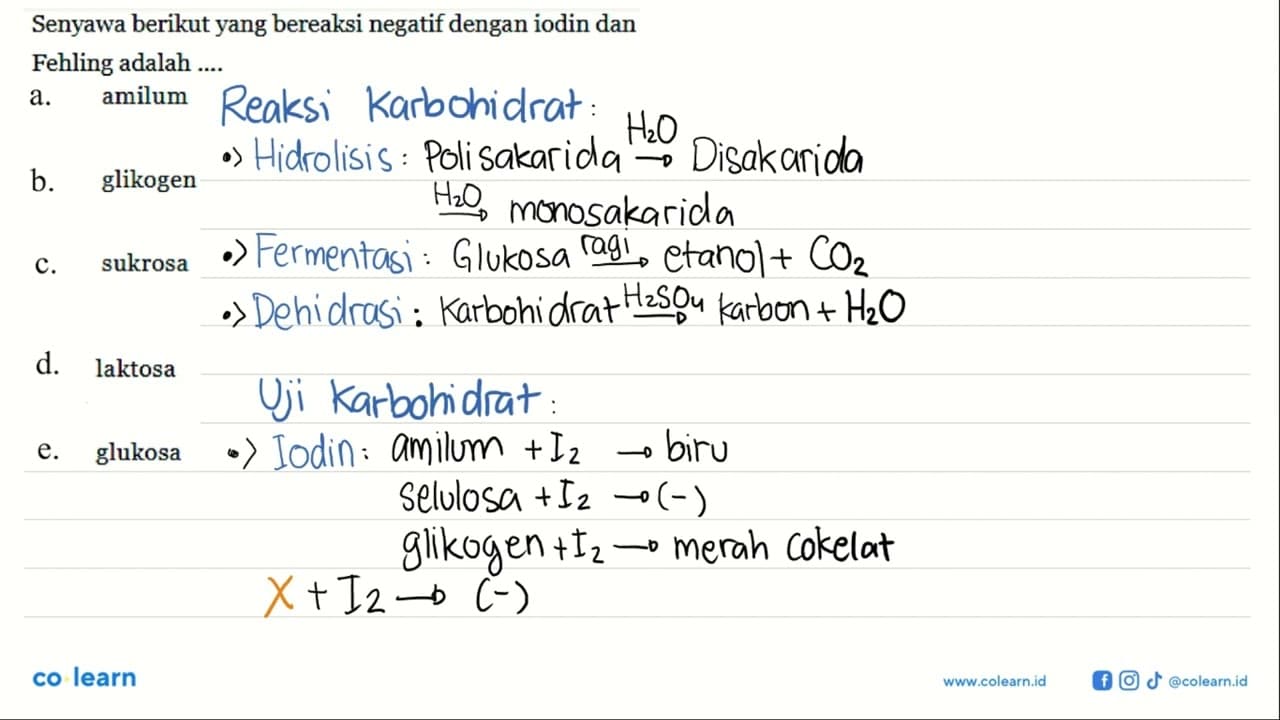 Senyawa berikut yang bereaksi negatif dengan iodin dan
Fehling adalah ....
a. amilum
b. glikogen
c. sukrosa
d. laktosa
e. glukosa
Reaksi Karbohidrat :
•> Hidrolisis : Polisakarida H2O → Disakarida
H2O → monosakarida
•> Fermentasi : Glukosa ragi → etanol + CO2
•> Dehidrasi : Karbohidrat H2SO4 → karbon + H2O
Uji Karbohidrat :
•> Iodin : amilum + I2 → biru
selulosa + I2 → (-)
glikogen + I2 → merah cokelat
X + I2 → (-)
co learn
www.colearn.id
@colearn.id